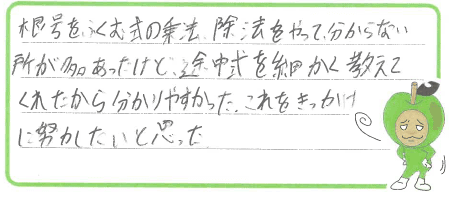 根号をふくむ式の乗法、除法をやって、分からない
所が多あったけど、途中式を細かく教えて
くれたから分かりやすかった。これをきっかけ
に努力したいと思った